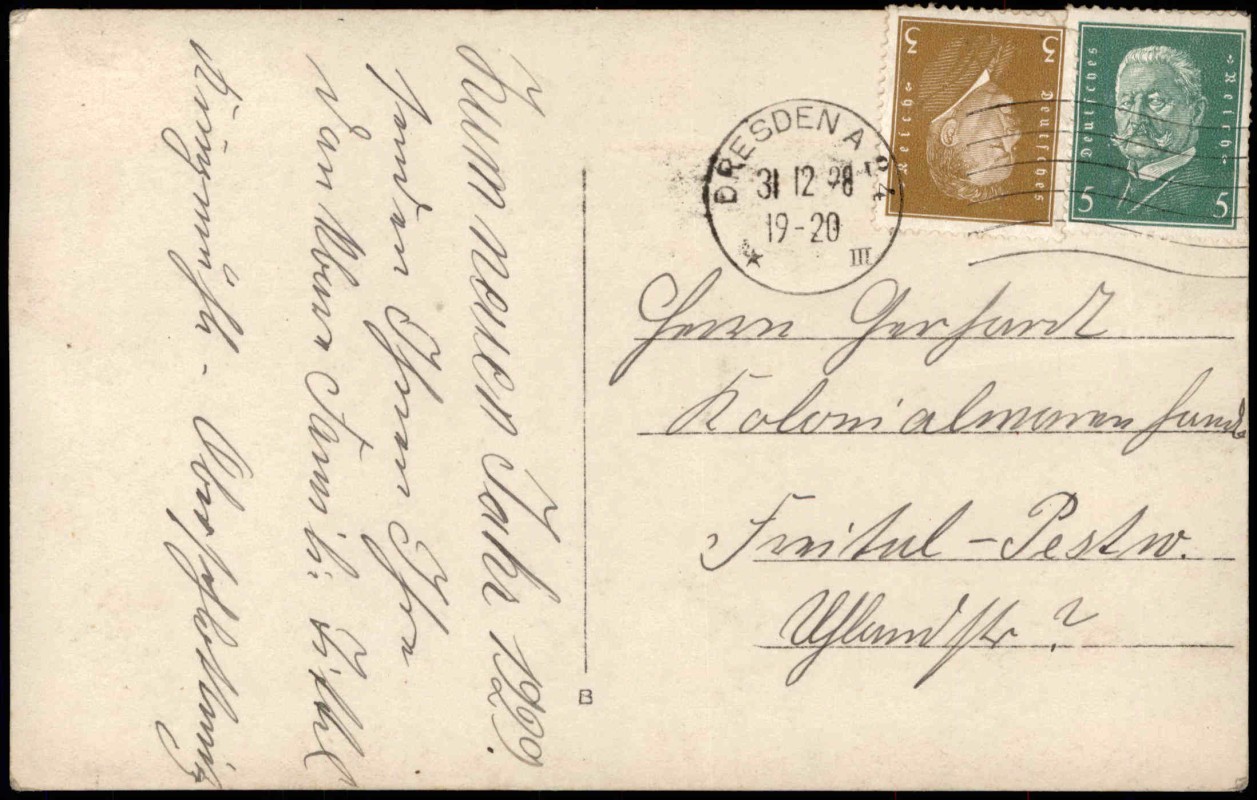 Zum neuen Jahr 1929.
senden Ihnen Ihre
DRESDEN A 24
31 12 28
19-20
III
3 3
Deutsches Reich
Deutsches Reich
5 5
Herrn Gerhardt
Kolonialwaren hand.
Freital - Pestw.
Uhlandstr ?
B